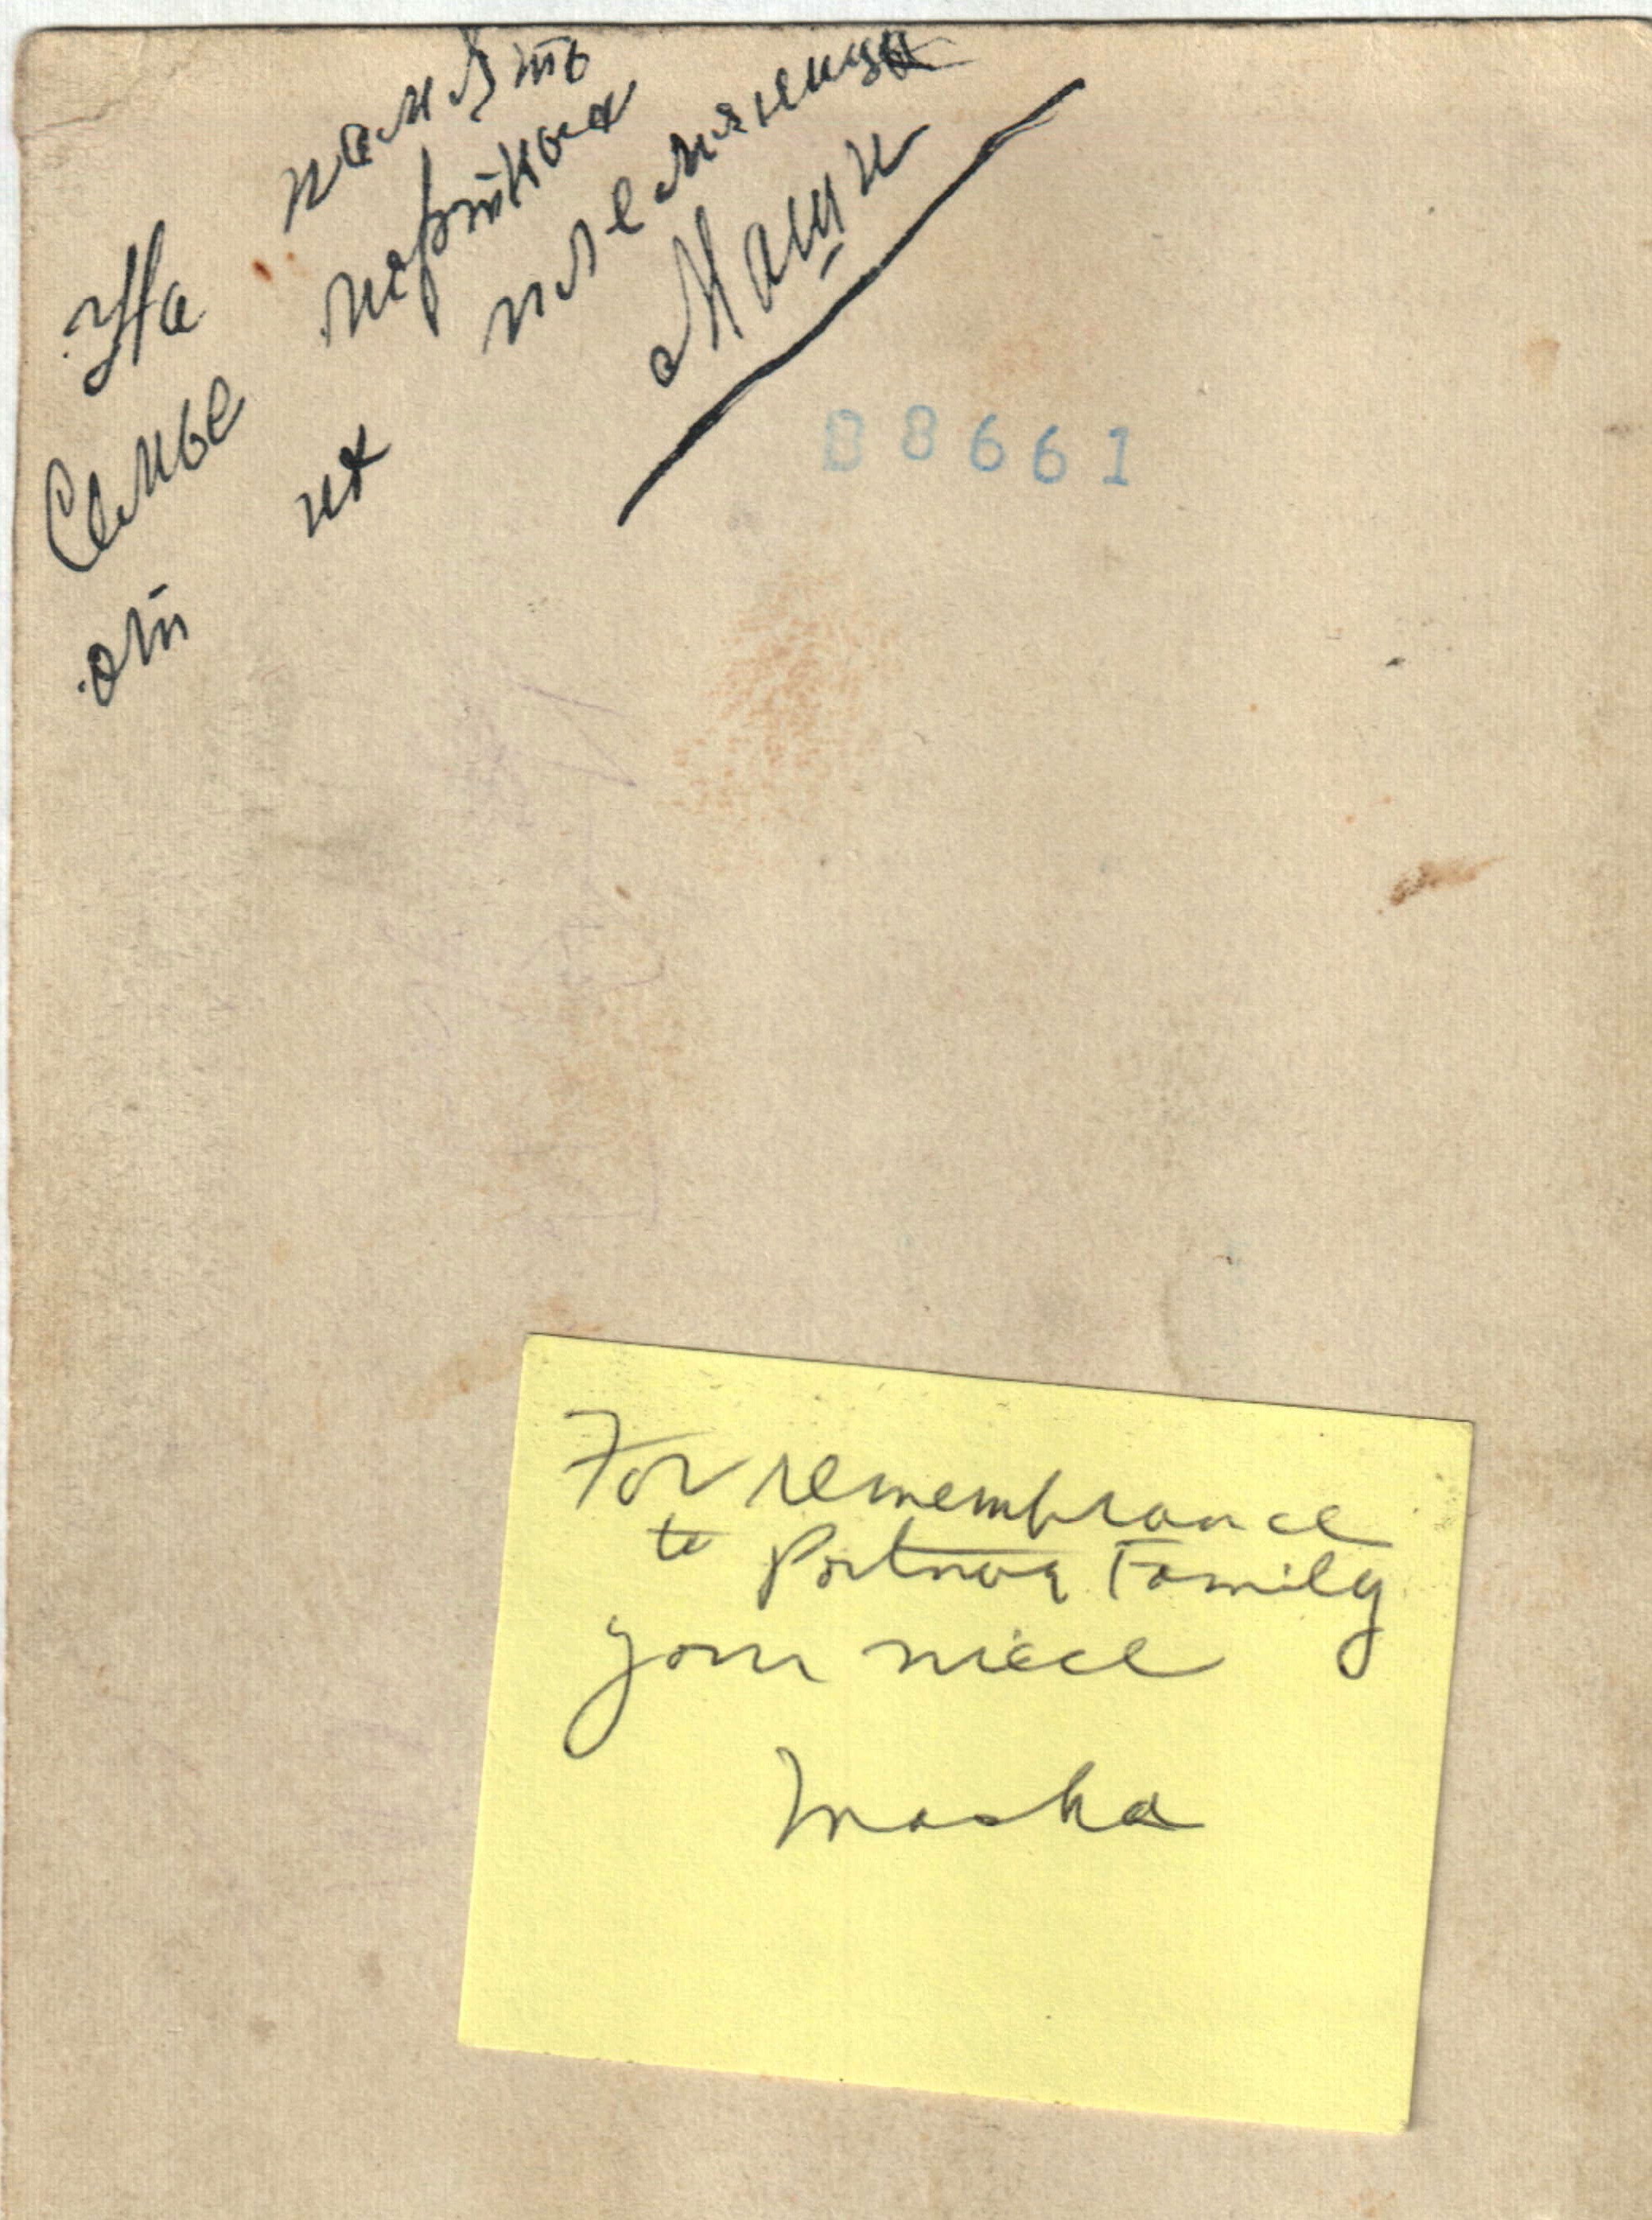 На память
Семье Портная
от их племянницы
Маши
D8661
For remembrance
to Portnoa Family
your niece
Masha